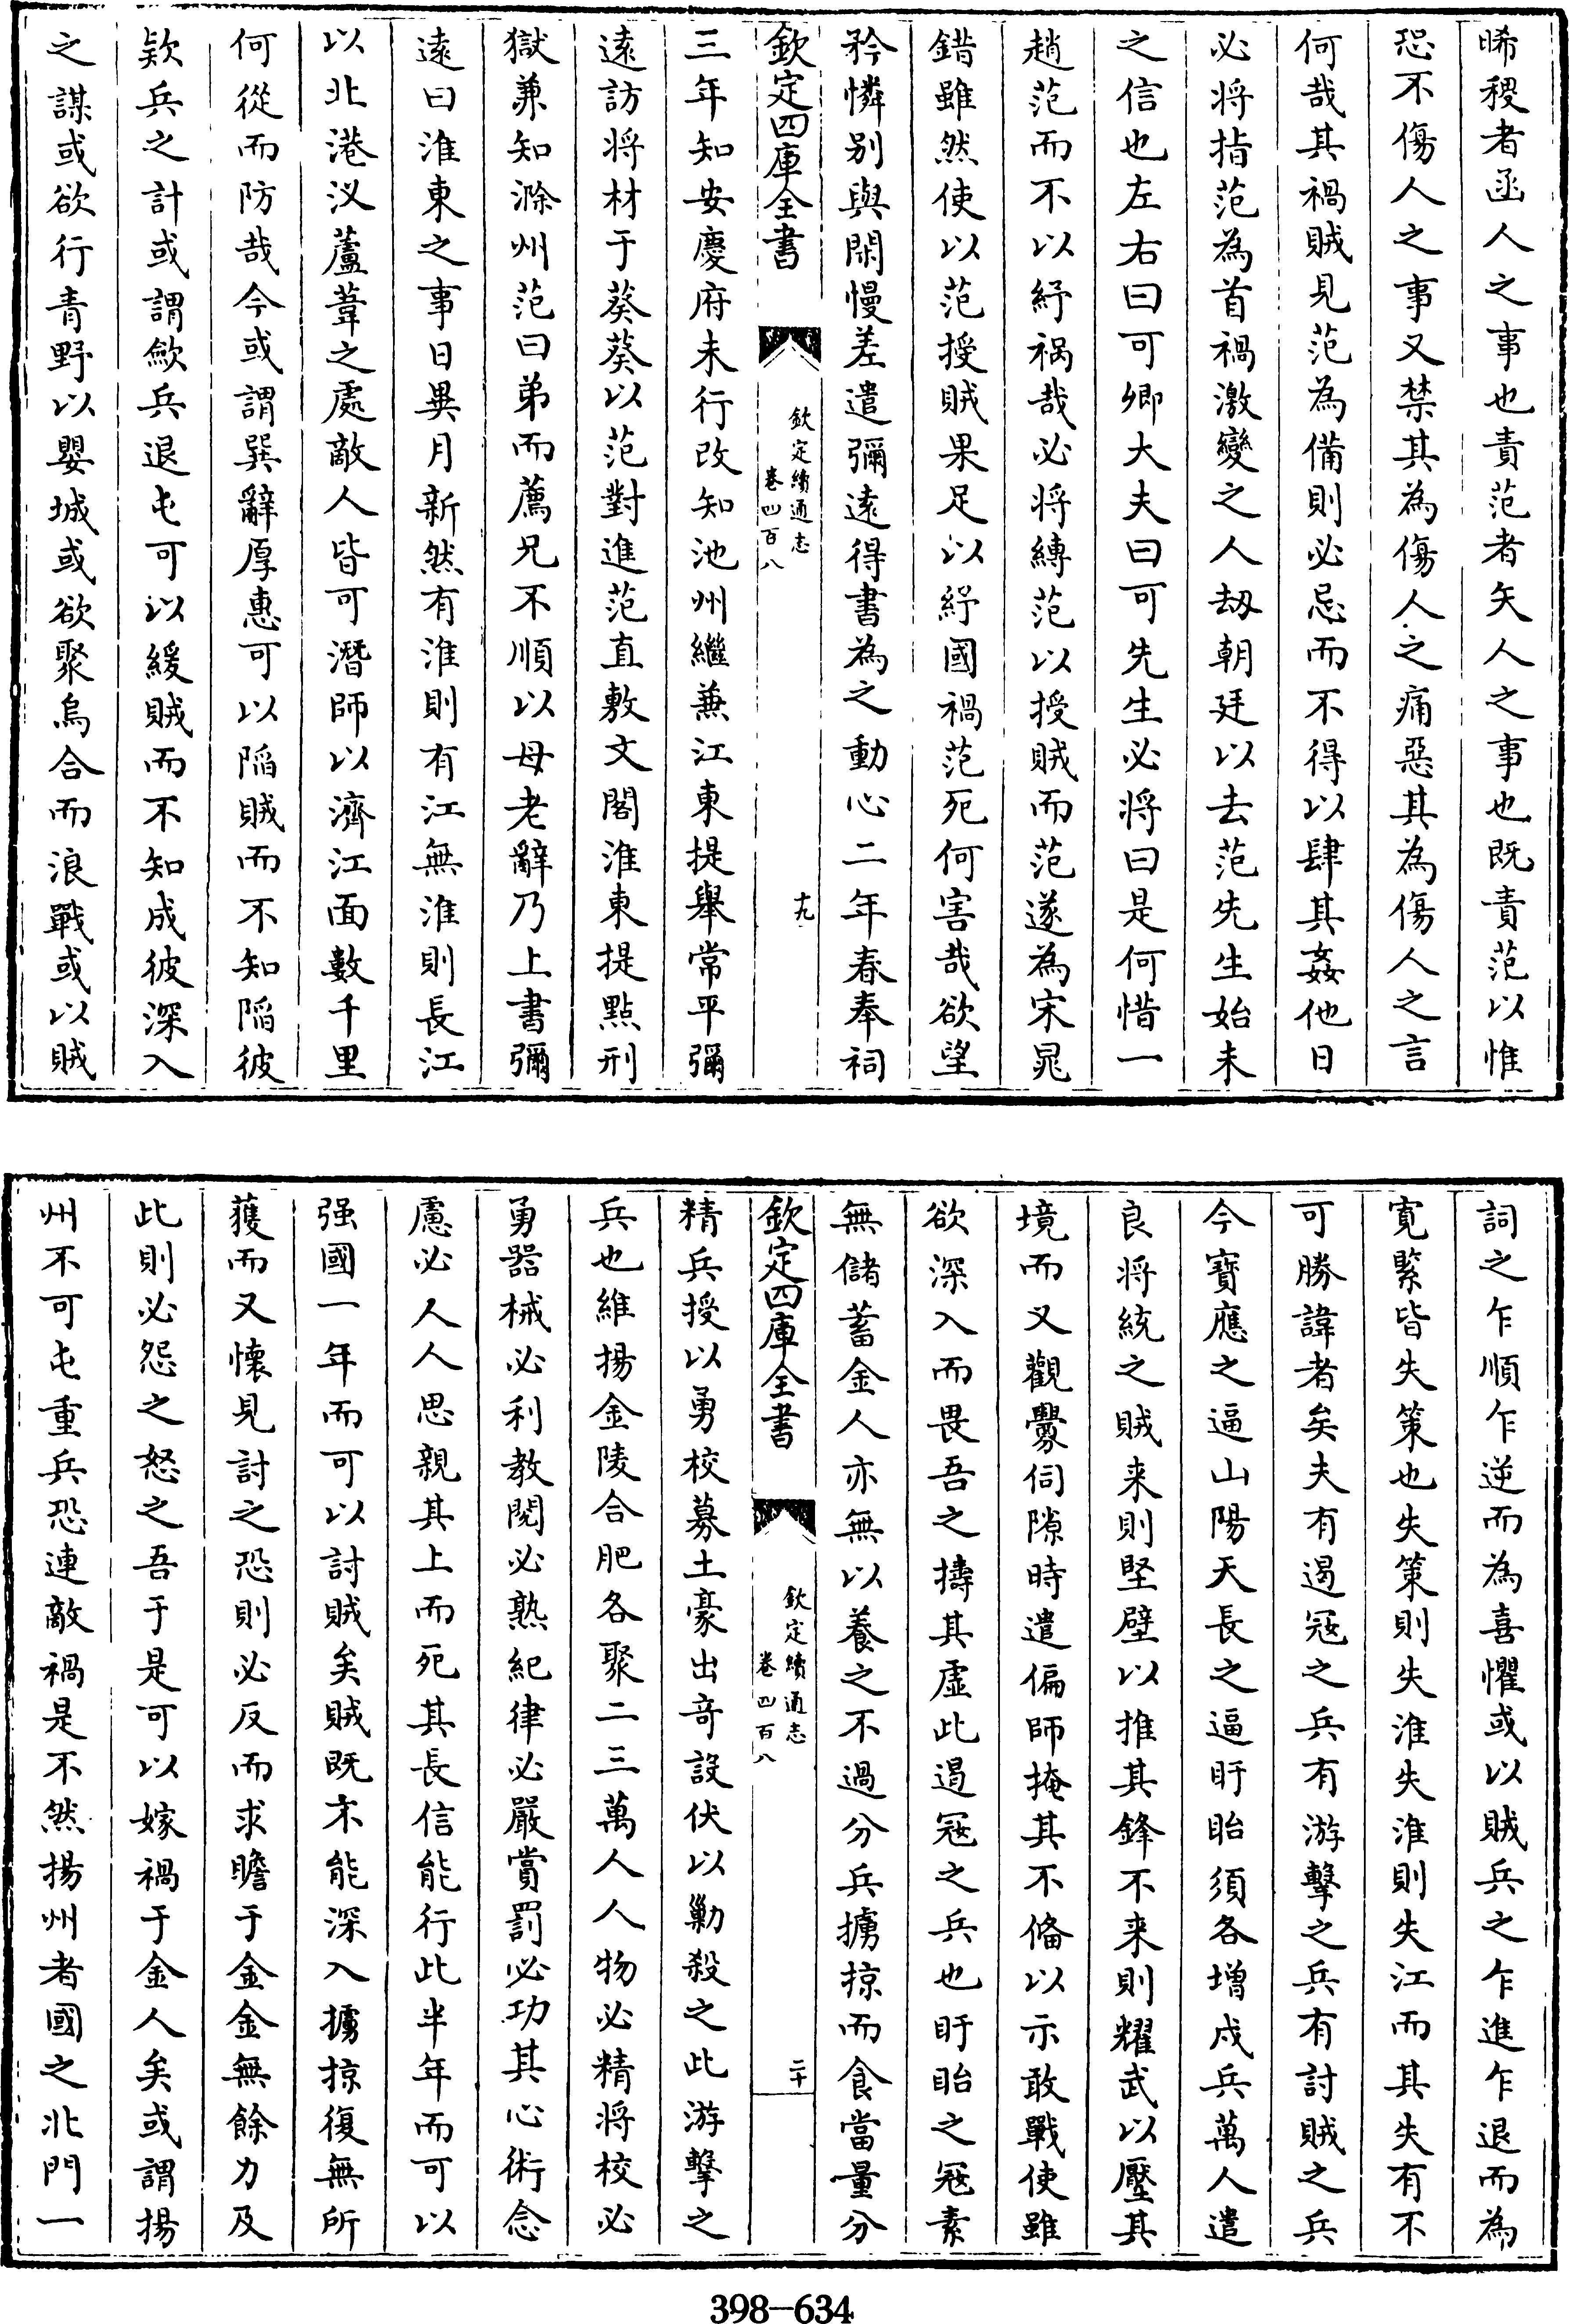 晞稷者函人之事也責范者矢人之事也既責范以惟
恐不傷人之事又禁其為傷人之痛惡其為傷人之言
何哉其禍賊見范為備則必忌而不得以肆其姦他日
必将指范為首禍激變之人刼朝廷以去范先生始未
之信也左右曰可卿大夫曰可先生必将曰是何惜一
趙范而不以紓禍哉必将縳范以授賊而范遂為宋晁
錯雖然使以范授賊果足以紓國禍范死何害哉欲望
矜憐别與閑慢差遣彌逺得書為之動心二年春奉祠
欽定四庫全書
欽定續通志
卷四百八
十九
三年知安慶府未行改知池州繼兼江東提舉常平彌
逺訪将材于葵葵以范對進范直敷文閣淮東提點刑
獄兼知滁州范曰弟而薦兄不順以母老辭乃上書彌
逺曰淮東之事日異月新然有淮則有江無淮則長江
以北港汊蘆葦之處敵人皆可潛師以濟江面數千里
何從而防哉今或謂巽辭厚惠可以陷賊而不知陷彼
欵兵之計或謂斂兵退屯可以緩賊而不知成彼深入
之謀或欲行青野以嬰城或欲聚烏合而浪戰或以賊
詞之乍順乍逆而為喜懼或以賊兵之乍進乍退而為
寛緊皆失策也失策則失淮失淮則失江而其失有不
可勝諱者矣夫有遏冦之兵有游擊之兵有討賊之兵
今寶應之逼山陽天長之逼盱眙須各增戍兵萬人遣
良将統之賊来則堅壁以推其鋒不来則耀武以壓其
境而又觀釁伺隙時遣偏師掩其不備以示敢戰使雖
欲深入而畏吾之擣其虛此遏冦之兵也盱眙之冦素
無儲蓄金人亦無以養之不過分兵擄掠而食當量分
欽定四庫全書
欽定續通志
卷四百八
二十
精兵授以勇校募土豪出竒設伏以勦殺之此游擊之
兵也維揚金陵合肥各聚二三萬人人物必精将校必
勇器械必利教閱必熟紀律必嚴賞罰必功其心術念
慮必人人思親其上而死其長信能行此半年而可以
强國一年而可以討賊矣賊既不能深入擄掠復無所
獲而又懷見討之恐則必反而求贍于金金無餘力及
此則必怨之怒之吾于是可以嫁禍于金人矣或謂揚
州不可屯重兵恐連敵禍是不然揚州者國之北門一
398-634